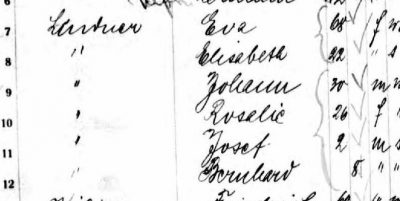 7 Lindner Eva 68 f w
8 " Elisabeth 22 " s
9 " Johann 30 m m
10 " Rosalie 26 f "
11 " Josef 2 m s
12 " Bernhard 8 " "